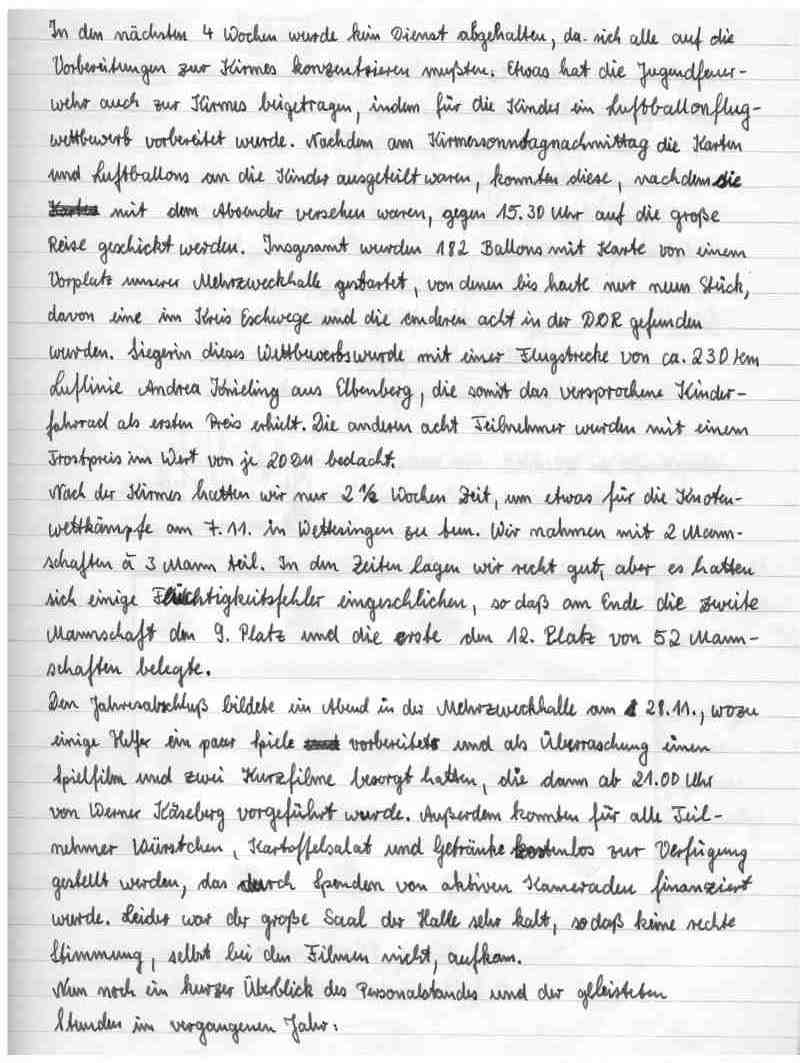 In den nächsten 4 Wochen wurde kein Dienst abgehalten, da sich alle auf die
Vorbereitungen zur Kirmes konzentrieren mußten. Etwas hat die Jugendfeuer-
wehr auch zur Kirmes beigetragen, indem für die Kinder ein Luftballonflug-
wettbewerb vorbereitet wurde. Nachdem am Kirmessonndagnachmittag die Karten
und Luftballons an die Kinder ausgeteilt waren, konnten diese, nachdem sie
mit dem Absender versehen waren, gegen 15.30 Uhr auf die große
Reise geschickt werden. Insgesamt wurden 182 Ballons mit Karte von einem
Vorplatz unserer Mehrzweckhalle gestartet, von denen bis heute nur neun Stück,
davon eine im Kreis Eschwege und die anderen acht in der DDR gefunden
wurden. Siegerin dieses Wettbewerbs wurde mit einer Flugstrecke von ca. 230 km
Luflinie Andrea Krieling aus Elbenberg, die somit das versprochene Kinder-
fahrrad als ersten Preis erhielt. Die anderen acht Teilnehmer wurden mit einem
Trostpreis im Wert von je 20 DM bedacht.
Nach der Kirmes hatten wir nur 2 ½ Wochen Zeit, um etwas für die Knoten-
wettkämpfe am 7.11. in Wettesingen zu tun. Wir nahmen mit 2 Mann-
schaften à 3 Mann teil. In den Zeiten lagen wir recht gut, aber es hatten
sich einige Flüchtigkeitsfehler eingeschlichen, so daß am Ende die zweite
Mannschaft den 9. Platz und die erste den 12. Platz von 52 Mann-
schaften belegte.
Den Jahresabschluß bildete ein Abend in der Mehrzweckhalle am 28.11., wozu
einige Helfer ein paar Spiele vorbereitet und als Überraschung einen
Spielfilm und zwei Kurzfilme besorgt hatten, die dann ab 21.00 Uhr
von Werner Käseberg vorgeführt wurde. Außerdem konnten für alle Teil-
nehmer Würstchen, Kartoffelsalat und Getränke kostenlos zur Verfügung
gestellt werden, das durch Spenden von aktiven Kameraden finanziert
wurde. Leider war der große Saal der Halle sehr kalt, so daß keine rechte
Stimmung, selbst bei den Filmen nicht, aufkam.
Nun noch ein kurzer Überblick des Personalstandes und der geleisteten
Stunden im vergangenen Jahr: